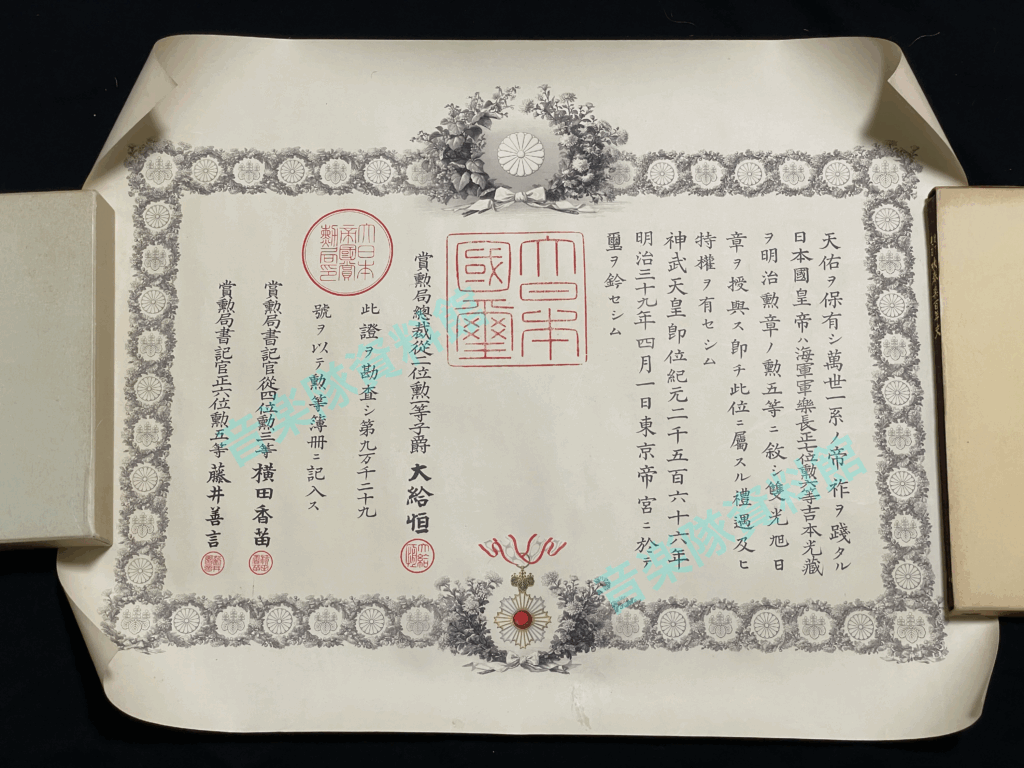 天佑ヲ保有シ萬世一系ノ帝祚ヲ踐タル
日本國皇帝ハ海軍軍樂長正七位勲六等吉本光藏
ヲ明治勲章ノ勲五等ニ敘シ雙光旭日
章ヲ授與ス即チ此位ニ屬スル禮遇及ヒ
特權ヲ有セシム
神武天皇即位紀元二千五百六十六年
明治三十九年四月一日東京帝宮ニ於テ
璽ヲ鈐セシム
大日本
國璽
賞勲局總裁從二位勲一等子爵大給恒
此證ヲ勘査シ第九万千二十九
號ヲ以テ勲等簿冊ニ記入ス
大日本
帝國賞
勲局印
賞勲局書記官從四位勲三等橫田香苗
賞勲局書記官正六位勲五等藤井善言
音楽隊資料館
音楽隊資料館